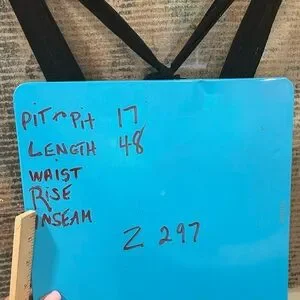 PIT ~ Pit 17
LENGTH 48
WAIST
RiSE
INSEAM
Z 297